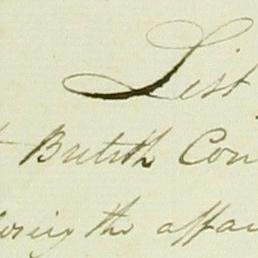 List
British Con
the affai